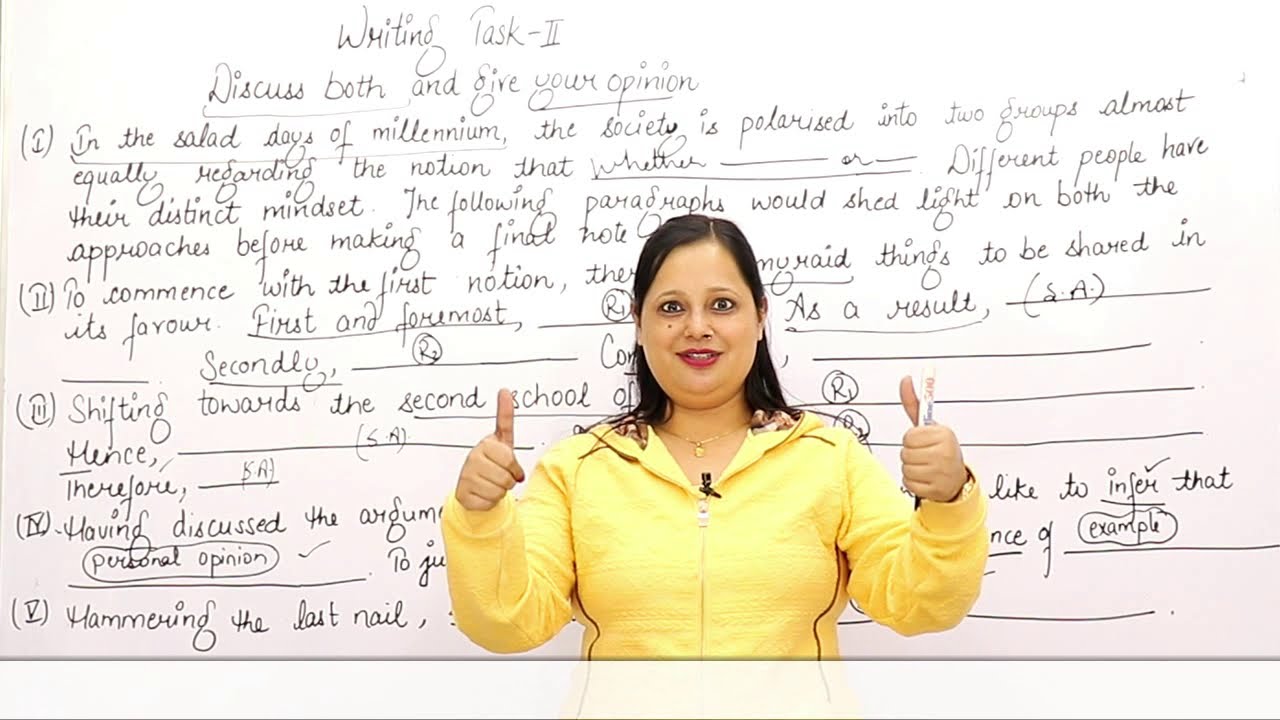 Writing Task-II
Discuss both and give your opinion
(I) In the salad days of millennium, the society is polarised into two groups almost
equally regarding the notion that whether ______ or ___. Different people have
their distinct mindset. The following paragraphs would shed light on both the
approaches before making a final note
(II) To commence with the first notion, the myraid things to be shared in
its favour. First and foremost, ______ (R1) As a result, (S.A.)
______. Secondly, (R2) ______ Con ______, ______
(III) Shifting towards the second school of (R1) ______.
Hence, ______ (S.A) ______. (R2) ______.
Therefore, (S.A)
(IV). Having discussed the argume like to infer that
(personal opinion) ✓ ______. To ju nce of (example) ______
(V) Hammering the last nail, ______.